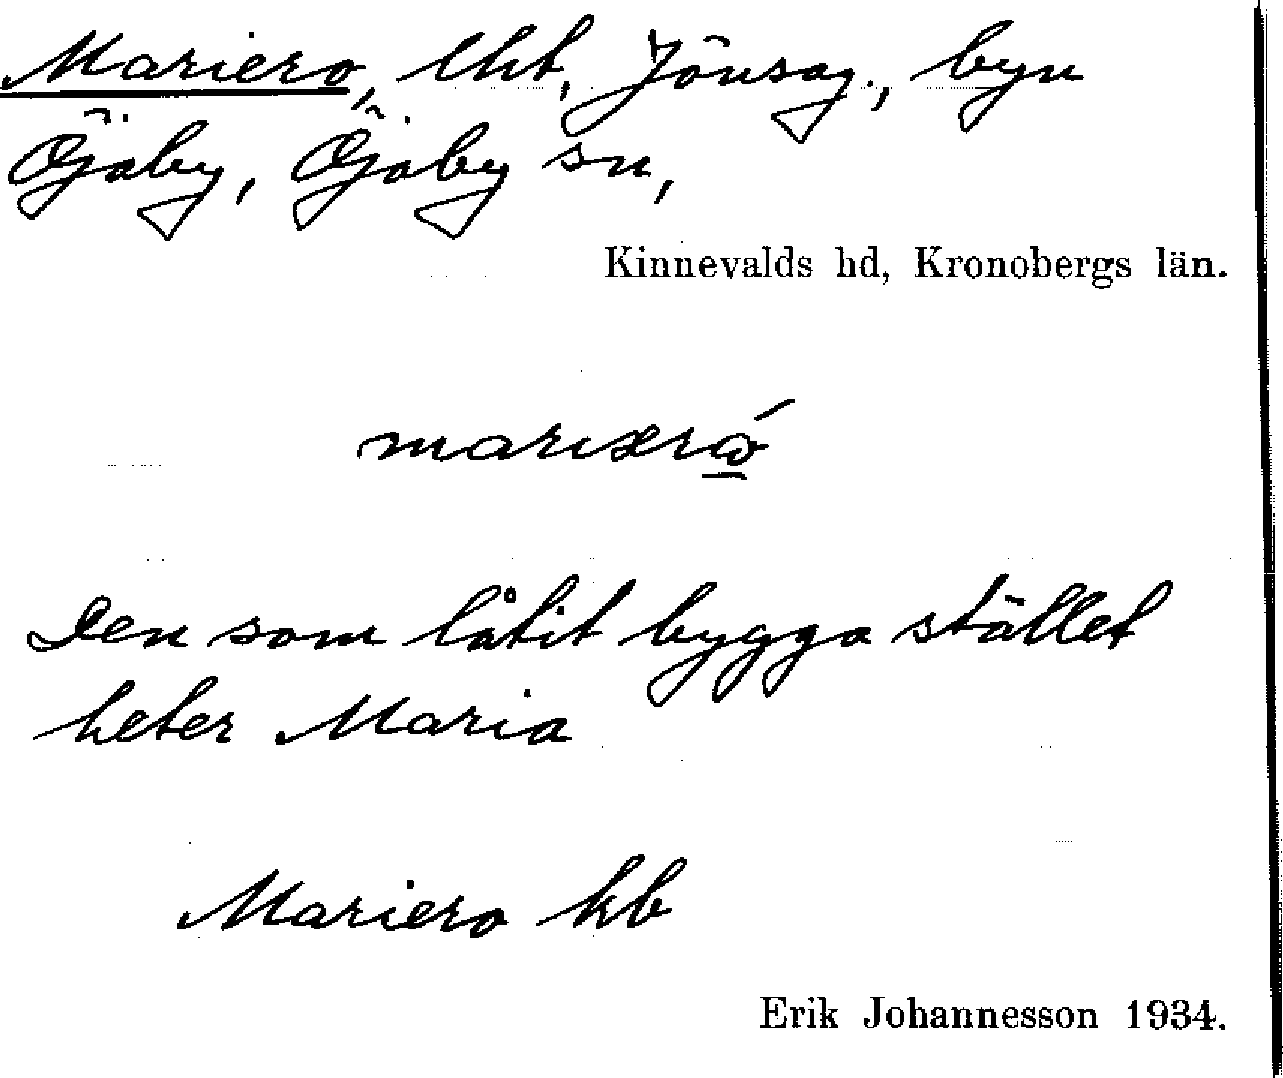 Mariero, lht, Jönsag., byn
Öjaby, Öjaby sn,
Kinnevalds hd, Kronobergs län.
Den som låtit bygga stället
heter Maria
Mariero hb
Erik Johannesson 1934.